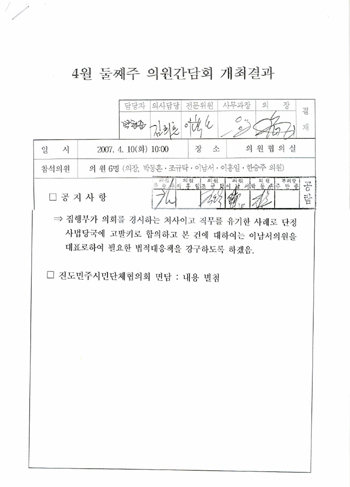 4월 둘째주 의원간담회 개최결과
담당자 의사담당 전문위원 사무과장 의 장 결재
일 시 2007. 4. 10(화) 10:00 장 소 의원협의실
참석의원 의원 6명 (의장, 박동훈·조규탁·이남서·이홍일·한승주 의원)
공람
□ 공지사항
⇒ 집행부가 의회를 경시하는 처사이고 직무를 유기한 사례로 단정
사법당국에 고발키로 합의하고 본 건에 대하여는 이남서의원을
대표로하여 필요한 법적대응책을 강구하도록 하겠음.
□ 진도민주시민단체협의회 면담 : 내용 별첨